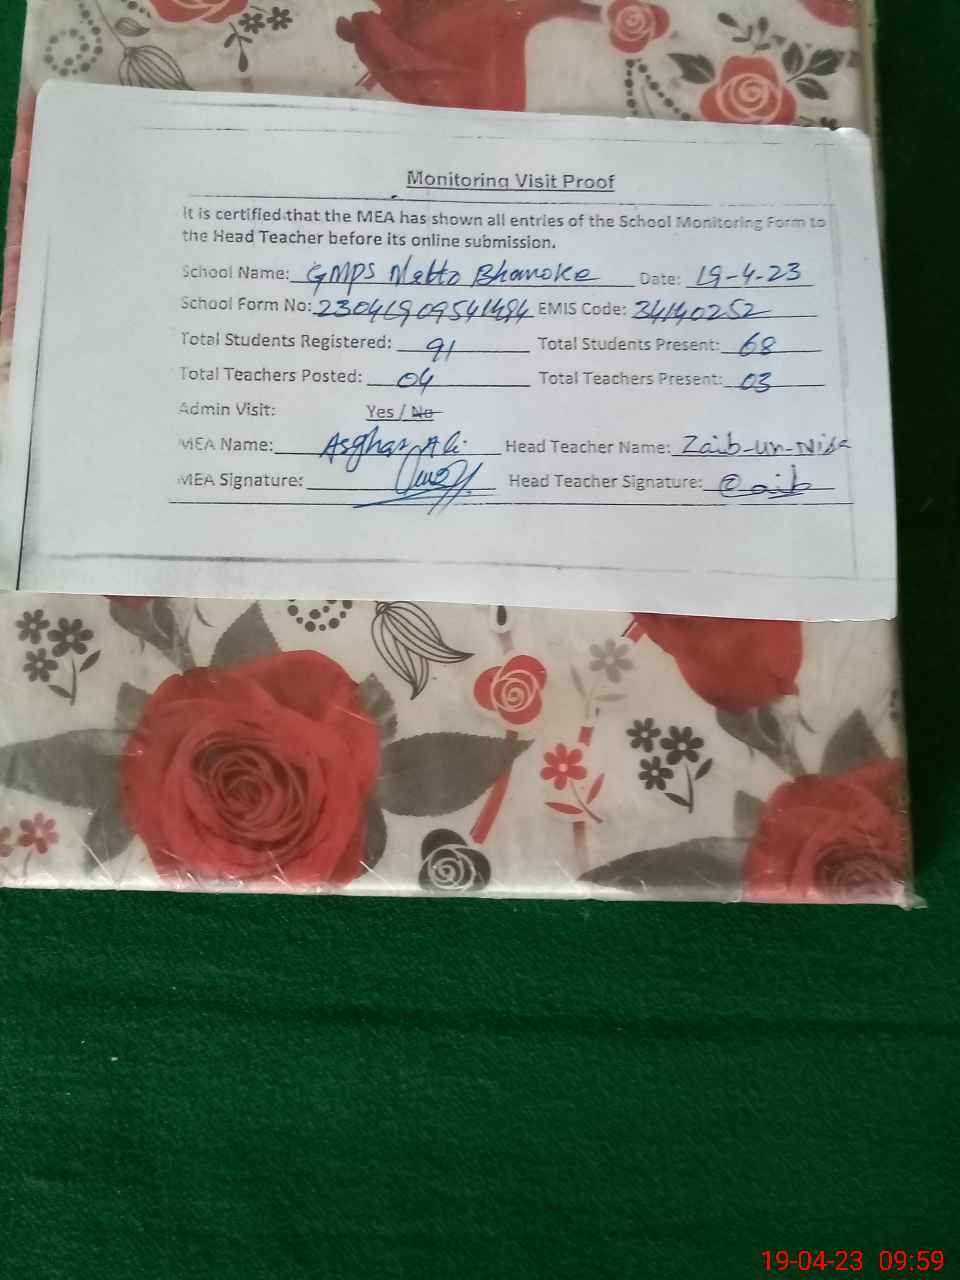 Monitoring Visit Proof
It is certified that the MEA has shown all entries of the School Monitoring Form to
the Head Teacher before its online submission.
School Name: GMPS Netto Bhanoke Date: 19-4-23
School Form No: 23041909541494 EMIS Code: 34140252
Total Students Registered: 91 Total Students Present: 68
Total Teachers Posted: 04 Total Teachers Present: 03
Admin Visit: Yes / No
MEA Name: Asghar Ali Head Teacher Name: Zaib-un-Nisa
MEA Signature: Head Teacher Signature: Zaib
19-04-23 09:59